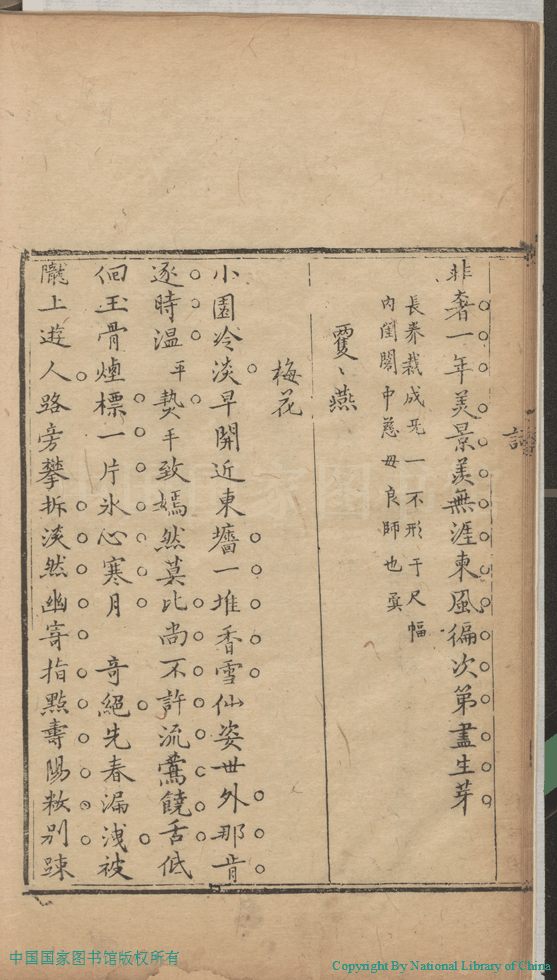 非奢一年美景羨無涯東風徧次第盡生芽
長養栽成旡一不形于尺幅
內閨閣中慈毋良師也
雙〻燕
梅花
小園冷淡早開近東墻一堆香雪仙姿世外那肯
逐時温平贄平致嫣然莫比尚不許流鶯饒舌低
佪玉骨煙標一片氷心寒月 奇絕先春漏洩被
隴上遊人路旁攀拆淡然幽寄指點壽陽粧別踈
中国国家图书馆版权所有
Copyright By National Library of China